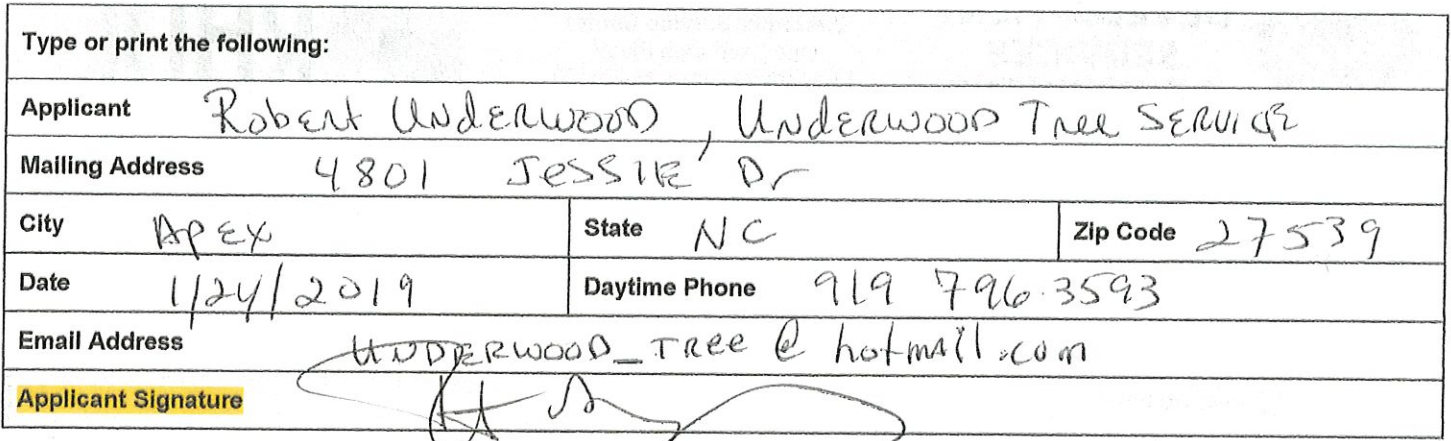 Type or print the following:
Applicant Robert Underwood, Underwood Tree Service
Mailing Address 4801 Jessie Dr
City Apex State NC Zip Code 27539
Date 1/24/2019 Daytime Phone 919 796.3593
Email Address UNDERWOOD_TREE@hotmail.com
Applicant Signature